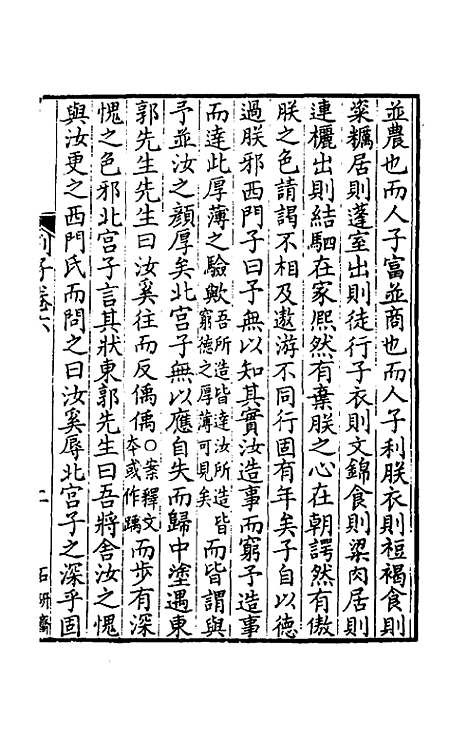 並農也而人子富並商也而人子利朕衣則裋褐食則
粢糲居則蓬室出則徒行子衣則文錦食則粱肉居則
連欐出則結駟在家熈然有棄朕之心在朝諤然有傲
朕之色請謁不相及遨游不同行固有年矣子自以德
過朕邪西門子曰予無以知其實汝造事而窮予造事
而達此厚薄之驗歟吾所造皆達汝所造皆窮德之厚薄可見矣而皆謂與
予並汝之顔厚矣北宫子無以應自失而歸中塗遇東
郭先生先生曰汝奚往而反偊偊○案釋文本或作踽而步有深
愧之色邪北宫子言其狀東郭先生曰吾將舍汝之愧
與汝更之西門氏而問之曰汝奚辱北宫子之深乎固
列子卷六
二
石研齋